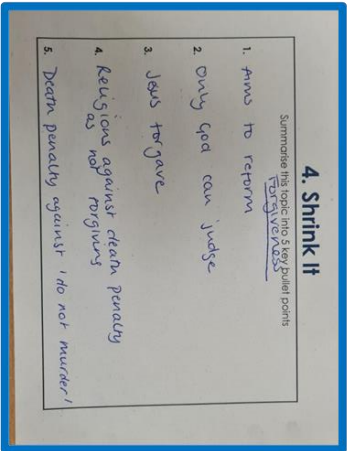 4. Shrink It
Summarise this topic into 5 key bullet points
Forgiveness
1. Aims to reform
2. Only God can judge
3. Jesus forgave
4. Religions against death penalty
as not forgiving
5. Death penalty against 'do not murder'